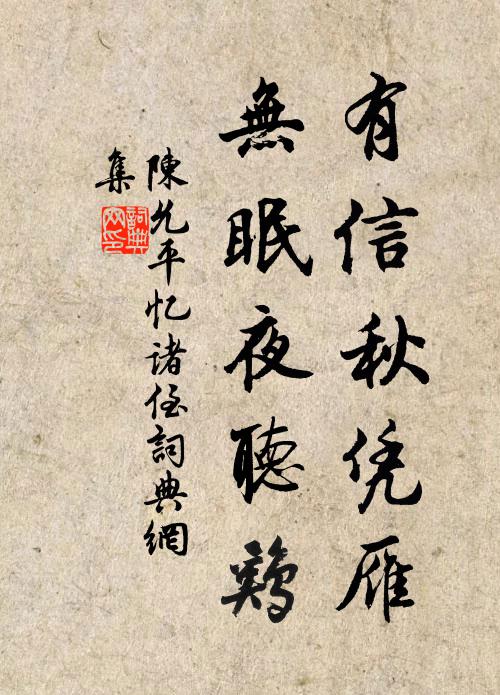 有信秋凭雁
無眠夜聽鷄
陳允平忆諸侄詞典網
集
詞典
网印